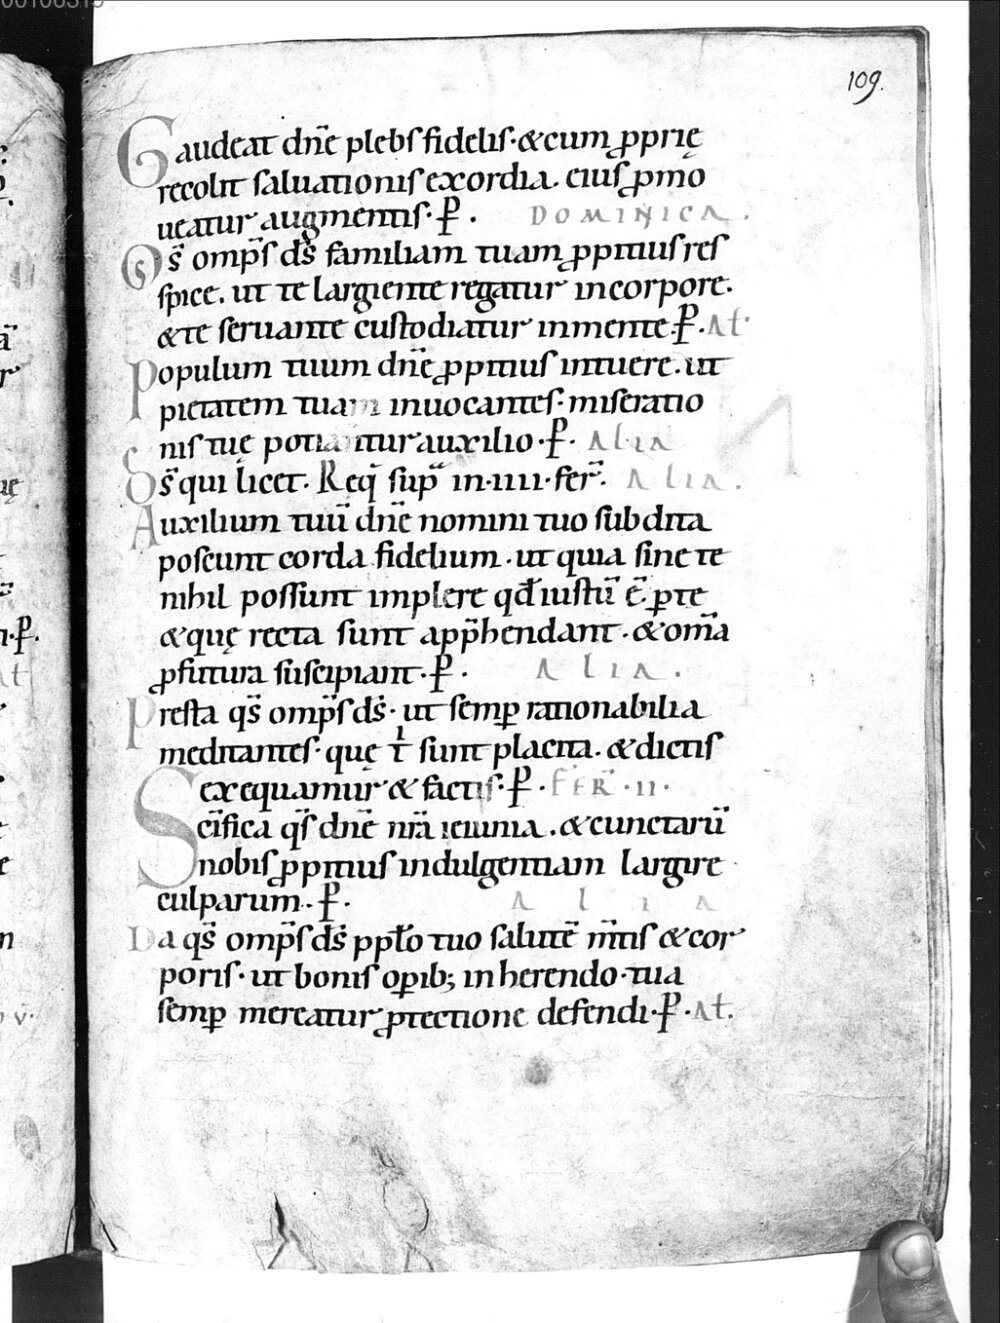 109.
Gaudeat dñe plebs fidelis· &cum ꝓprię
recolit saluationis exordia. eius ꝓmo
ueatur augmentis· P̱. DOMINICA.
Qs̄ omp̄s ds̄ familiam tuam ꝓpitius res
spice. ut te largiente regatur incorpore.
&te seruante custodiatur inmente P̱. At
Populum tuum dñe ꝓpitius intuere. ut
pietatem tuam inuocantes· miseratio
nis tuę potiantur auxilio· P̱. ALIA
Ds̄ qui licet. Req̄ sup̄ in·IIII·fer̄. ALIA.
Auxilium tuū dñe nomini tuo subdita
poscunt corda fidelium· ut quia sine te
nihil possunt implere qđ iustū ē· ꝑte
&quę recta sunt app̄hendant· &om̄a
ꝓfutura suscipiant· P̱. ALIA.
Presta qs̄ omp̄s ds̄· ut semꝑ rationabilia
meditantes· quę t̄ sunt placita. &dictis
exequamur & factis· P̱. FER̄·II·
Sc̄ifica qs̄ dñe nr̄a ieiunia. &cunctarū
nobis ꝓpitius indulgentiam largire
culparum·P̱. ALIA
Da qs̄ omp̄s ds̄ ppło tuo salutē m̄tis &cor
poris· ut bonis oꝑib; inherendo·tua
semꝑ mereatur ꝓtectione defendi·P̱. At.